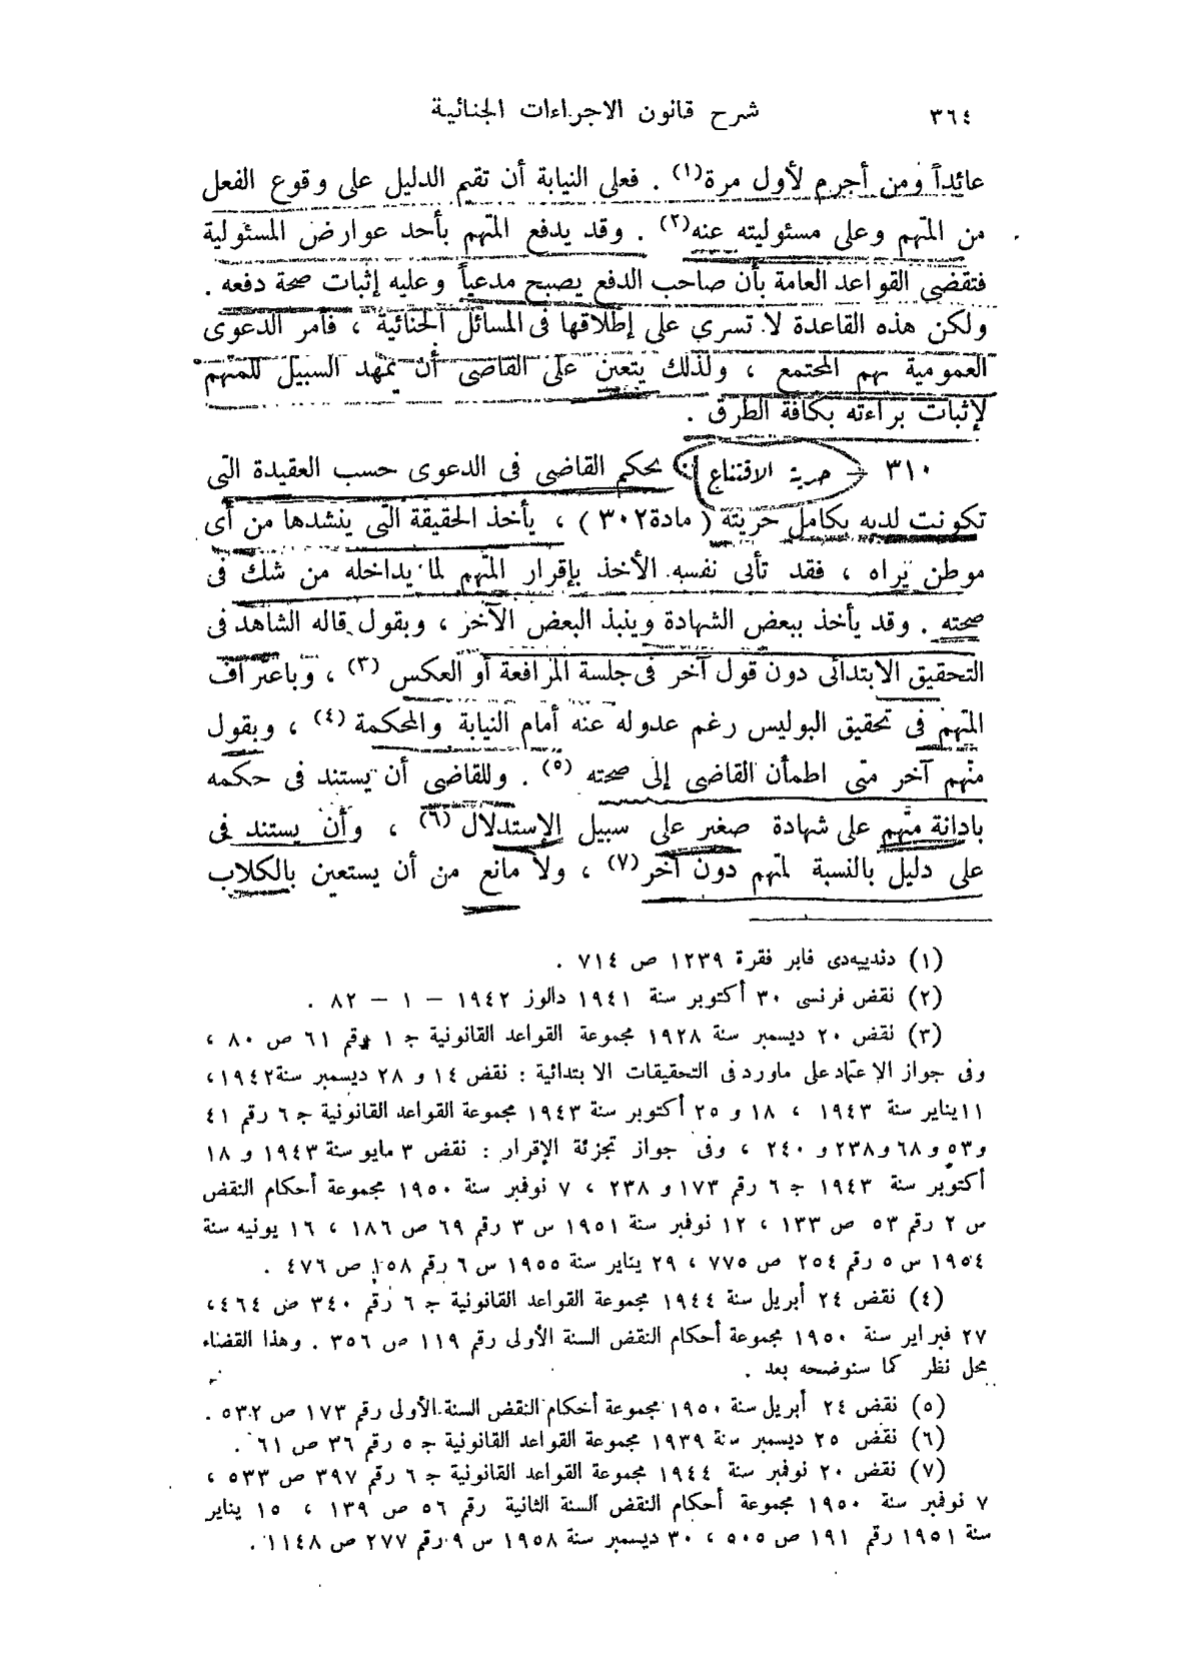 ٣٦٤
شرح قانون الاجراءات الجنائية
عائداً ومن أجرم لأول مرة(١) . فعلى النيابة أن تقيم الدليل على وقوع الفعل
من المتهم وعلى مسئوليته عنه(٢) . وقد يدفع المتهم بأحد عوارض المسئولية
فتقضى القواعد العامة بأن صاحب الدفع يصبح مدعياً وعليه إثبات صحة دفعه .
ولكن هذه القاعدة لا تسري على إطلاقها فى المسائل الجنائية ، فأمر الدعوى
العمومية يهم المجتمع ، ولذلك يتعين على القاضى أن يمهد السبيل للمتهم
لإثبات براءته بكافة الطرق .
٣١٠ – حرية الاقتناع : يحكم القاضى فى الدعوى حسب العقيدة التى
تكونت لديه بكامل حريته ( مادة ٣٠٢ ) ، يأخذ الحقيقة التى ينشدها من أى
موطن يراه ، فقد تأبى نفسه الأخذ بإقرار المتهم لما يداخله من شك فى
صحته . وقد يأخذ ببعض الشهادة وينبذ البعض الآخر ، وبقول قاله الشاهد فى
التحقيق الابتدائى دون قول آخر فى جلسة المرافعة أو العكس (٣) ، وباعتراف
المتهم فى تحقيق البوليس رغم عدوله عنه أمام النيابة والمحكمة (٤) ، وبقول
متهم آخر متى اطمأن القاضى إلى صحته (٥) . وللقاضى أن يستند فى حكمه
بادانة متهم على شهادة صغير على سبيل الإستدلال (٦) ، وأن يستند فى
على دليل بالنسبة لمتهم دون آخر (٧) ، ولا مانع من أن يستعين بالكلاب
(١) دندييه‌دى فابر فقرة ١٢٣٩ ص ٧١٤ .
(٢) نقض فرنسى ٣٠ أكتوبر سنة ١٩٤١ دالوز ١٩٤٢ – ١ – ٨٢ .
(٣) نقض ٢٠ ديسمبر سنة ١٩٢٨ مجموعة القواعد القانونية ج ١ رقم ٦١ ص ٨٠ ،
وفى جواز الإعتماد على ماورد فى التحقيقات الابتدائية : نقض ١٤ و ٢٨ ديسمبر سنة ١٩٤٢ ،
١١ يناير سنة ١٩٤٣ ، ١٨ و ٢٥ أكتوبر سنة ١٩٤٣ مجموعة القواعد القانونية ج ٦ رقم ٤١
و٥٣ و ٦٨ و٢٣٨ و ٢٤٠ ، وفى جواز تجزئة الإقرار : نقض ٣ مايو سنة ١٩٤٣ و ١٨
أكتوبر سنة ١٩٤٣ ج ٦ رقم ١٧٣ و ٢٣٨ ، ٧ نوفمبر سنة ١٩٥٠ مجموعة أحكام النقض
س ٢ رقم ٥٣ ص ١٣٣ ، ١٢ نوفمبر سنة ١٩٥١ س ٣ رقم ٦٩ ص ١٨٦ ، ١٦ يونيه سنة
١٩٥٤ س ٥ رقم ٢٥٤ ص ٧٧٥ ، ٢٩ يناير سنة ١٩٥٥ س ٦ رقم ١٥٨ ص ٤٧٦ .
(٤) نقض ٢٤ أبريل سنة ١٩٤٤ مجموعة القواعد القانونية ج ٦ رقم ٣٤٠ ص ٤٦٤ ،
٢٧ فبراير سنة ١٩٥٠ مجموعة أحكام النقض السنة الأولى رقم ١١٩ ص ٣٥٦ . وهذا القضاء
محل نظر كما سنوضحه بعد .
(٥) نقض ٢٤ أبريل سنة ١٩٥٠ مجموعة أحكام النقض السنة الأولى رقم ١٧٣ ص ٥٣٢ .
(٦) نقض ٢٥ ديسمبر سنة ١٩٣٩ مجموعة القواعد القانونية ج ٥ رقم ٣٦ ص ٦١ .
(٧) نقض ٢٠ نوفمبر سنة ١٩٤٤ مجموعة القواعد القانونية ج ٦ رقم ٣٩٧ ص ٥٣٣ ،
٧ نوفمبر سنة ١٩٥٠ مجموعة أحكام النقض السنة الثانية رقم ٥٦ ص ١٣٩ ، ١٥ يناير
سنة ١٩٥١ رقم ١٩١ ص ٥٠٥ ، ٣٠ ديسمبر سنة ١٩٥٨ س ٩ رقم ٢٧٧ ص ١١٤٨ .